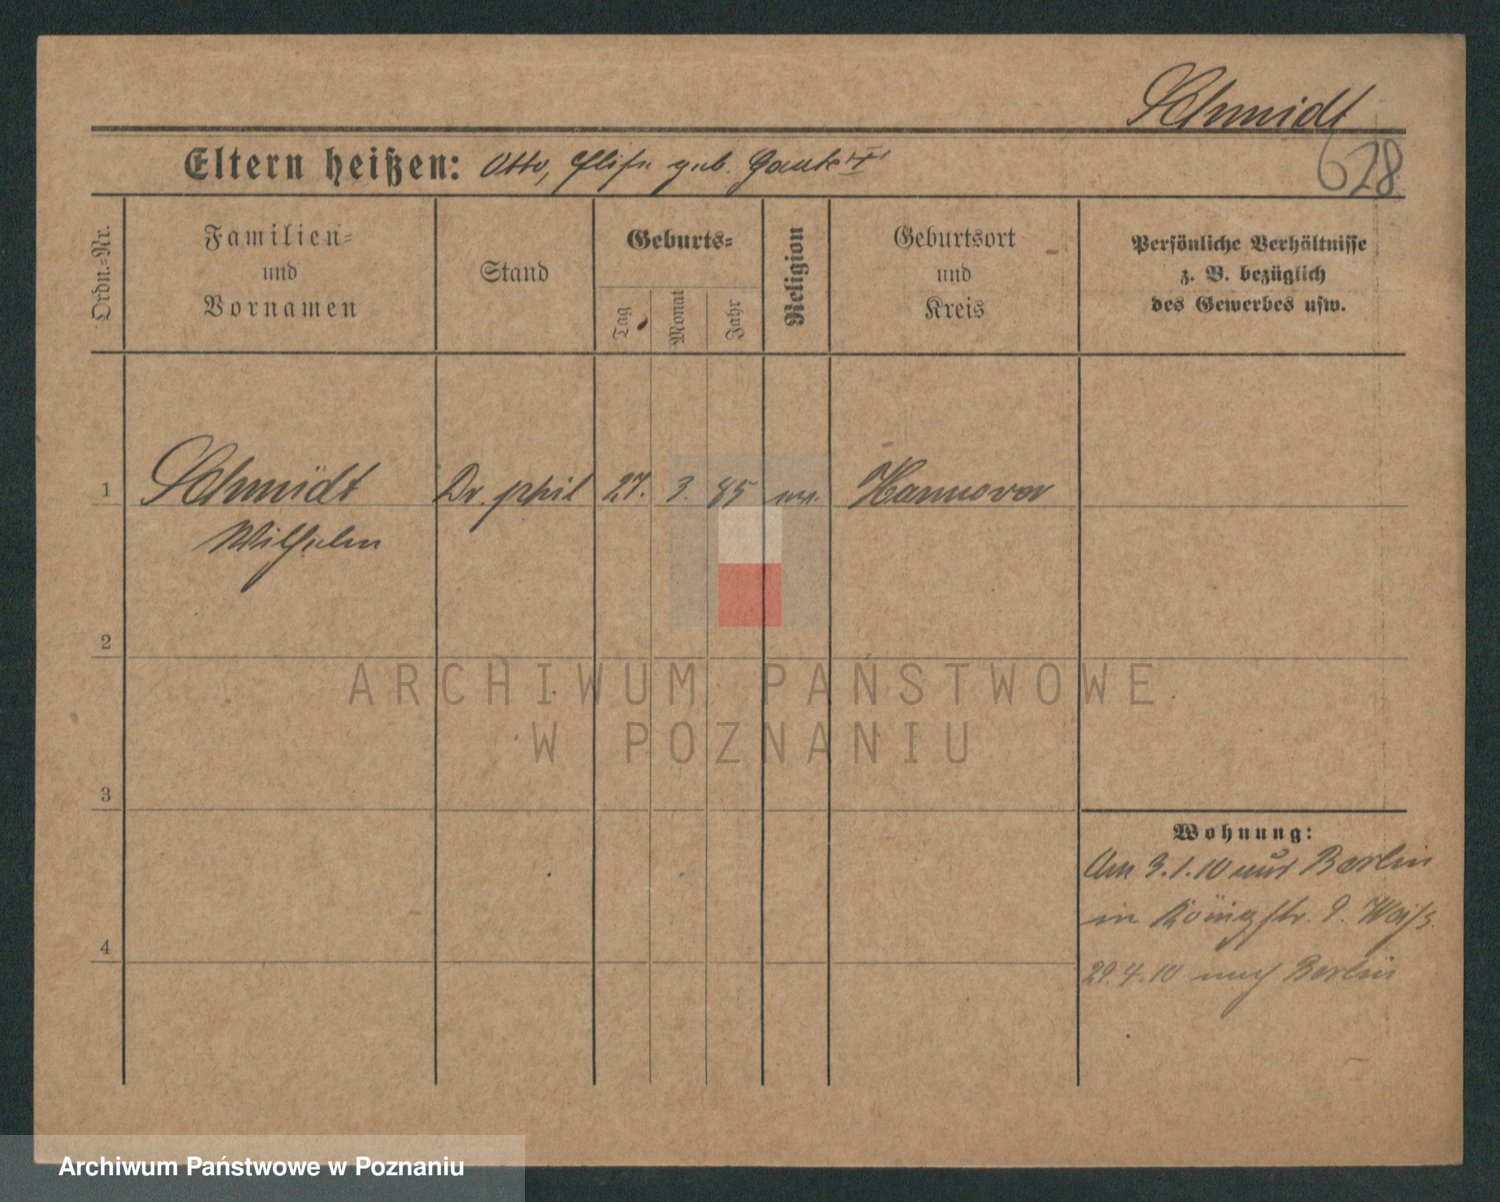 Schmidt
628
Eltern heißen: Otto, Elise geb.
Ordn.-Nr.
Familien-
und
Vornamen
Stand
Geburts-
Tag
Monat
Jahr
Religion
Geburtsort
und
Kreis
Persönliche Verhältnisse
z. B. bezüglich
des Gewerbes usw.
1 Schmidt Dr. phil 27. 3. 85 ev. Hannover
Wilhelm
2
3
4
Wohnung:
Am 3.1.10 aus Berlin
in Königstr. 9.
29.4.10 nach Berlin
ARCHIWUM PAŃSTWOWE
W POZNANIU
Archiwum Państwowe w Poznaniu